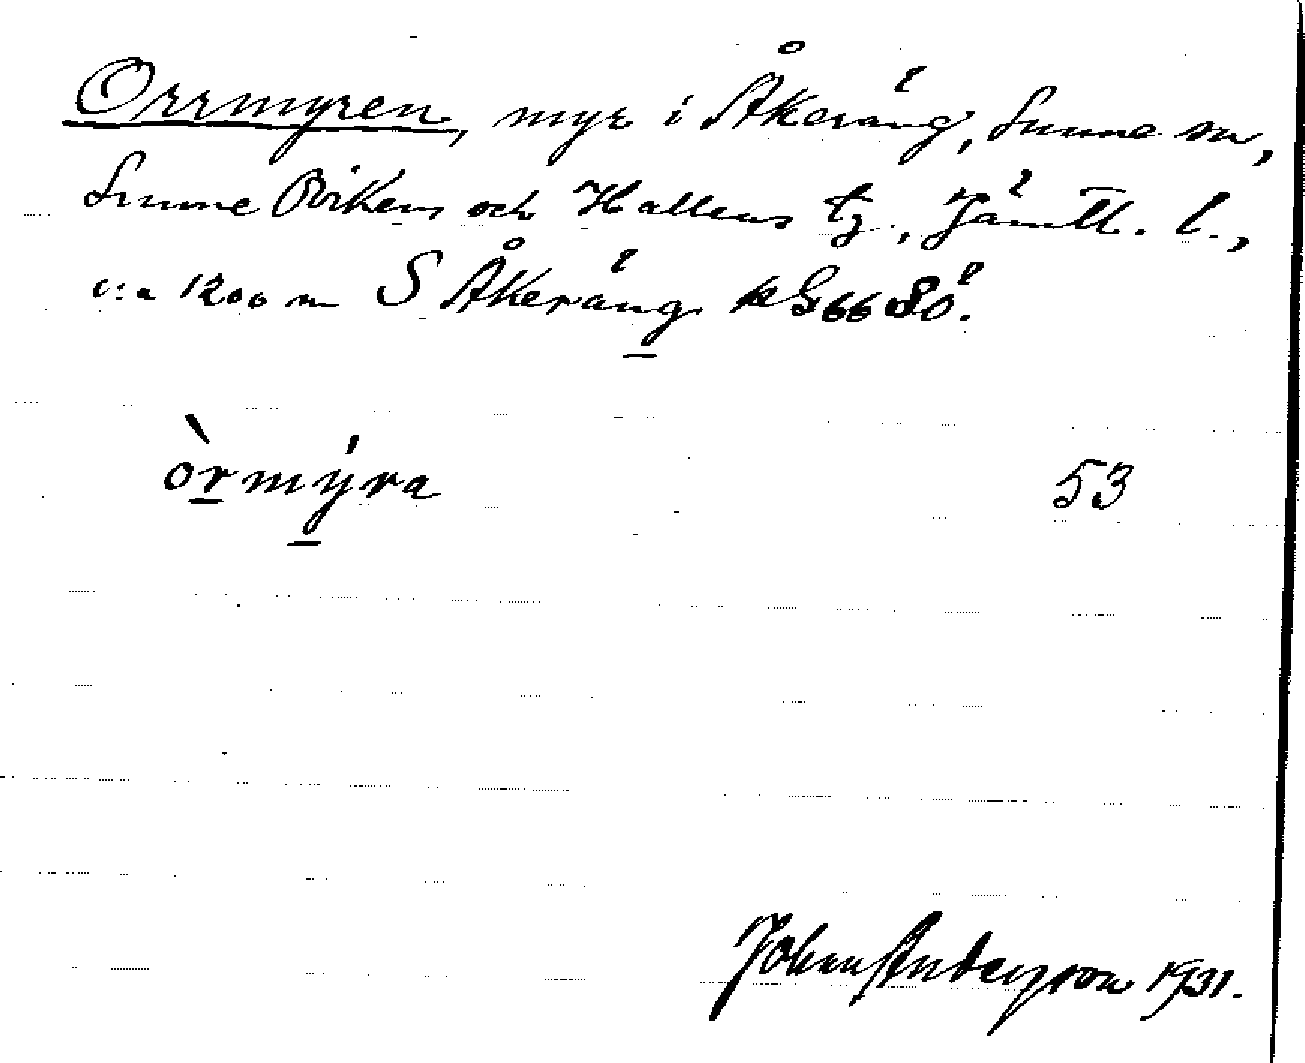 Orrmyren, myr i Åkeräng, Sunne sn,
Sunne Ovikens och Hallens tg., Jämtl. l.,
c:a 1200 m S Åkeräng kG 66 Sö.
òrmýra 53
Johan Anderson 1931.